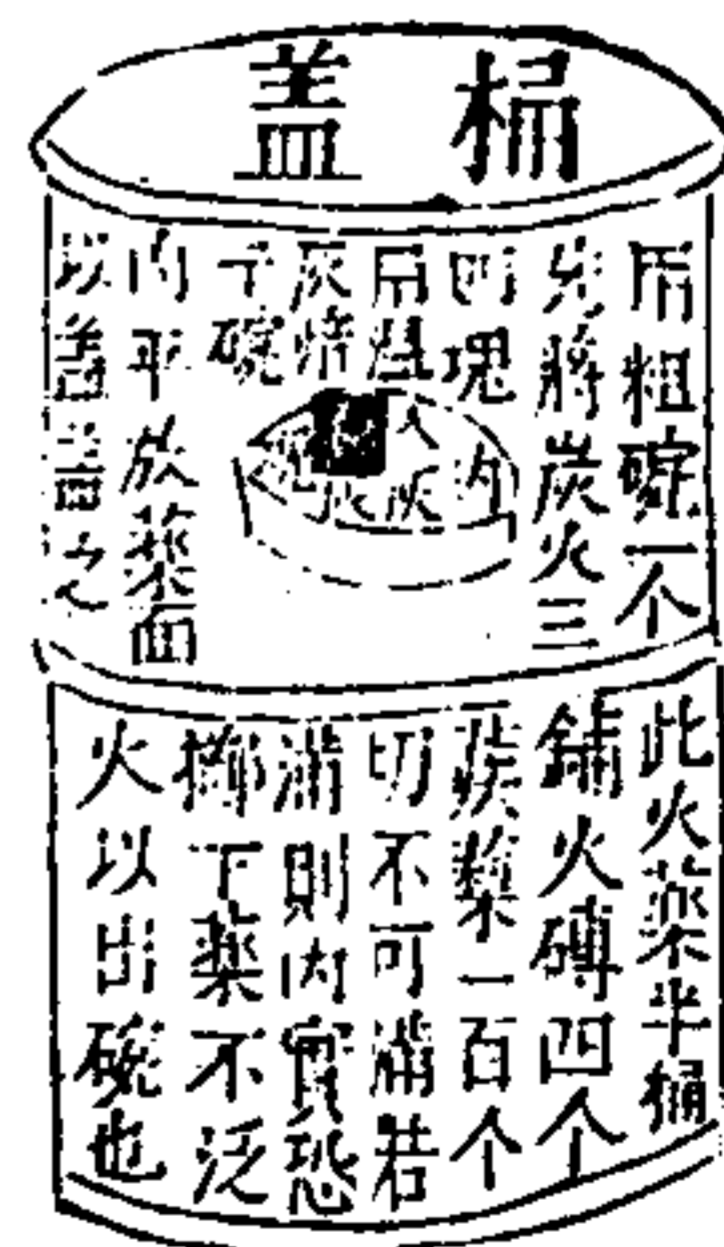 桶盖
用粗碗一个
先將炭火三
四塊
用温
灰培
于碗
内平放藥面
以盖盖之
火灰内
此火藥半桶
鋪火磚四个
蒺藜一百个
切不可滿若
滿則内實恐
擲下藥不泛
火以出碗也